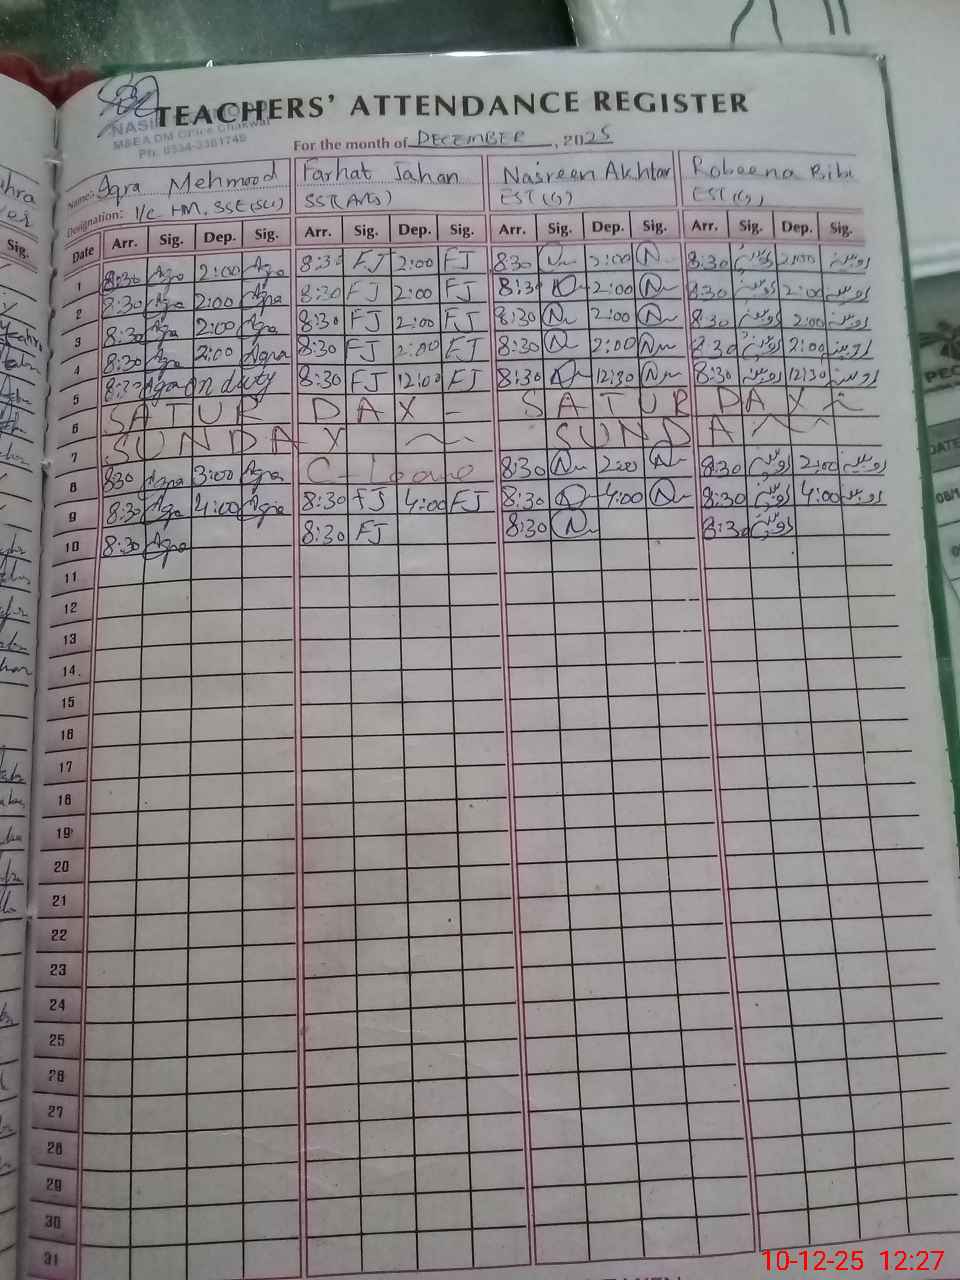 TEACHERS' ATTENDANCE REGISTER
M&EA DM Office Chakwal
Ph. 0334-3381748
For the month of DECEMBER, 2025
Name: Aqra Mehmood Farhat Jahan Nasreen Akhtar Robeena Bibi
Designation: I/C HM, SSE(Sci) SST(Arts) EST(G) EST(G)
Date Arr. Sig. Dep. Sig. Arr. Sig. Dep. Sig. Arr. Sig. Dep. Sig. Arr. Sig. Dep. Sig.
1 8:30 Aqra 2:00 Aqra 8:30 FJ 2:00 FJ 830 N 2:00 N 8:30 روبینہ 2:00 روبینہ
2 8:30 Aqra 2:00 Aqra 8:30 FJ 2:00 FJ 8:30 N 2:00 N 8:30 روبینہ 2:00 روبینہ
3 8:30 Aqra 2:00 Aqra 8:30 FJ 2:00 FJ 8:30 N 2:00 N 8:30 روبینہ 2:00 روبینہ
4 8:30 Aqra 2:00 Aqra 8:30 FJ 2:00 FJ 8:30 N 2:00 N 8:30 روبینہ 2:00 روبینہ
5 8:30 Aqra on duty 8:30 FJ 12:00 FJ 8:30 N 12:30 N 8:30 روبینہ 12:30 روبینہ
6 SATURDAY - SATURDAY
7 SUNDAY SUNDA
8 830 Aqra 3:00 Aqra C-Leave 8:30 N 2:00 N 8:30 روبینہ 2:00 روبینہ
9 8:30 Aqra 4:00 Aqra 8:30 FJ 4:00 FJ 8:30 N 4:00 N 8:30 روبینہ 4:00 روبینہ
10 8:30 Aqra 8:30 FJ 8:30 N 8:30 روبینہ
11
12
13
14.
15
16
17
18
19
20
21
22
23
24
25
26
27
28
29
30
31
Sig.
10-12-25 12:27